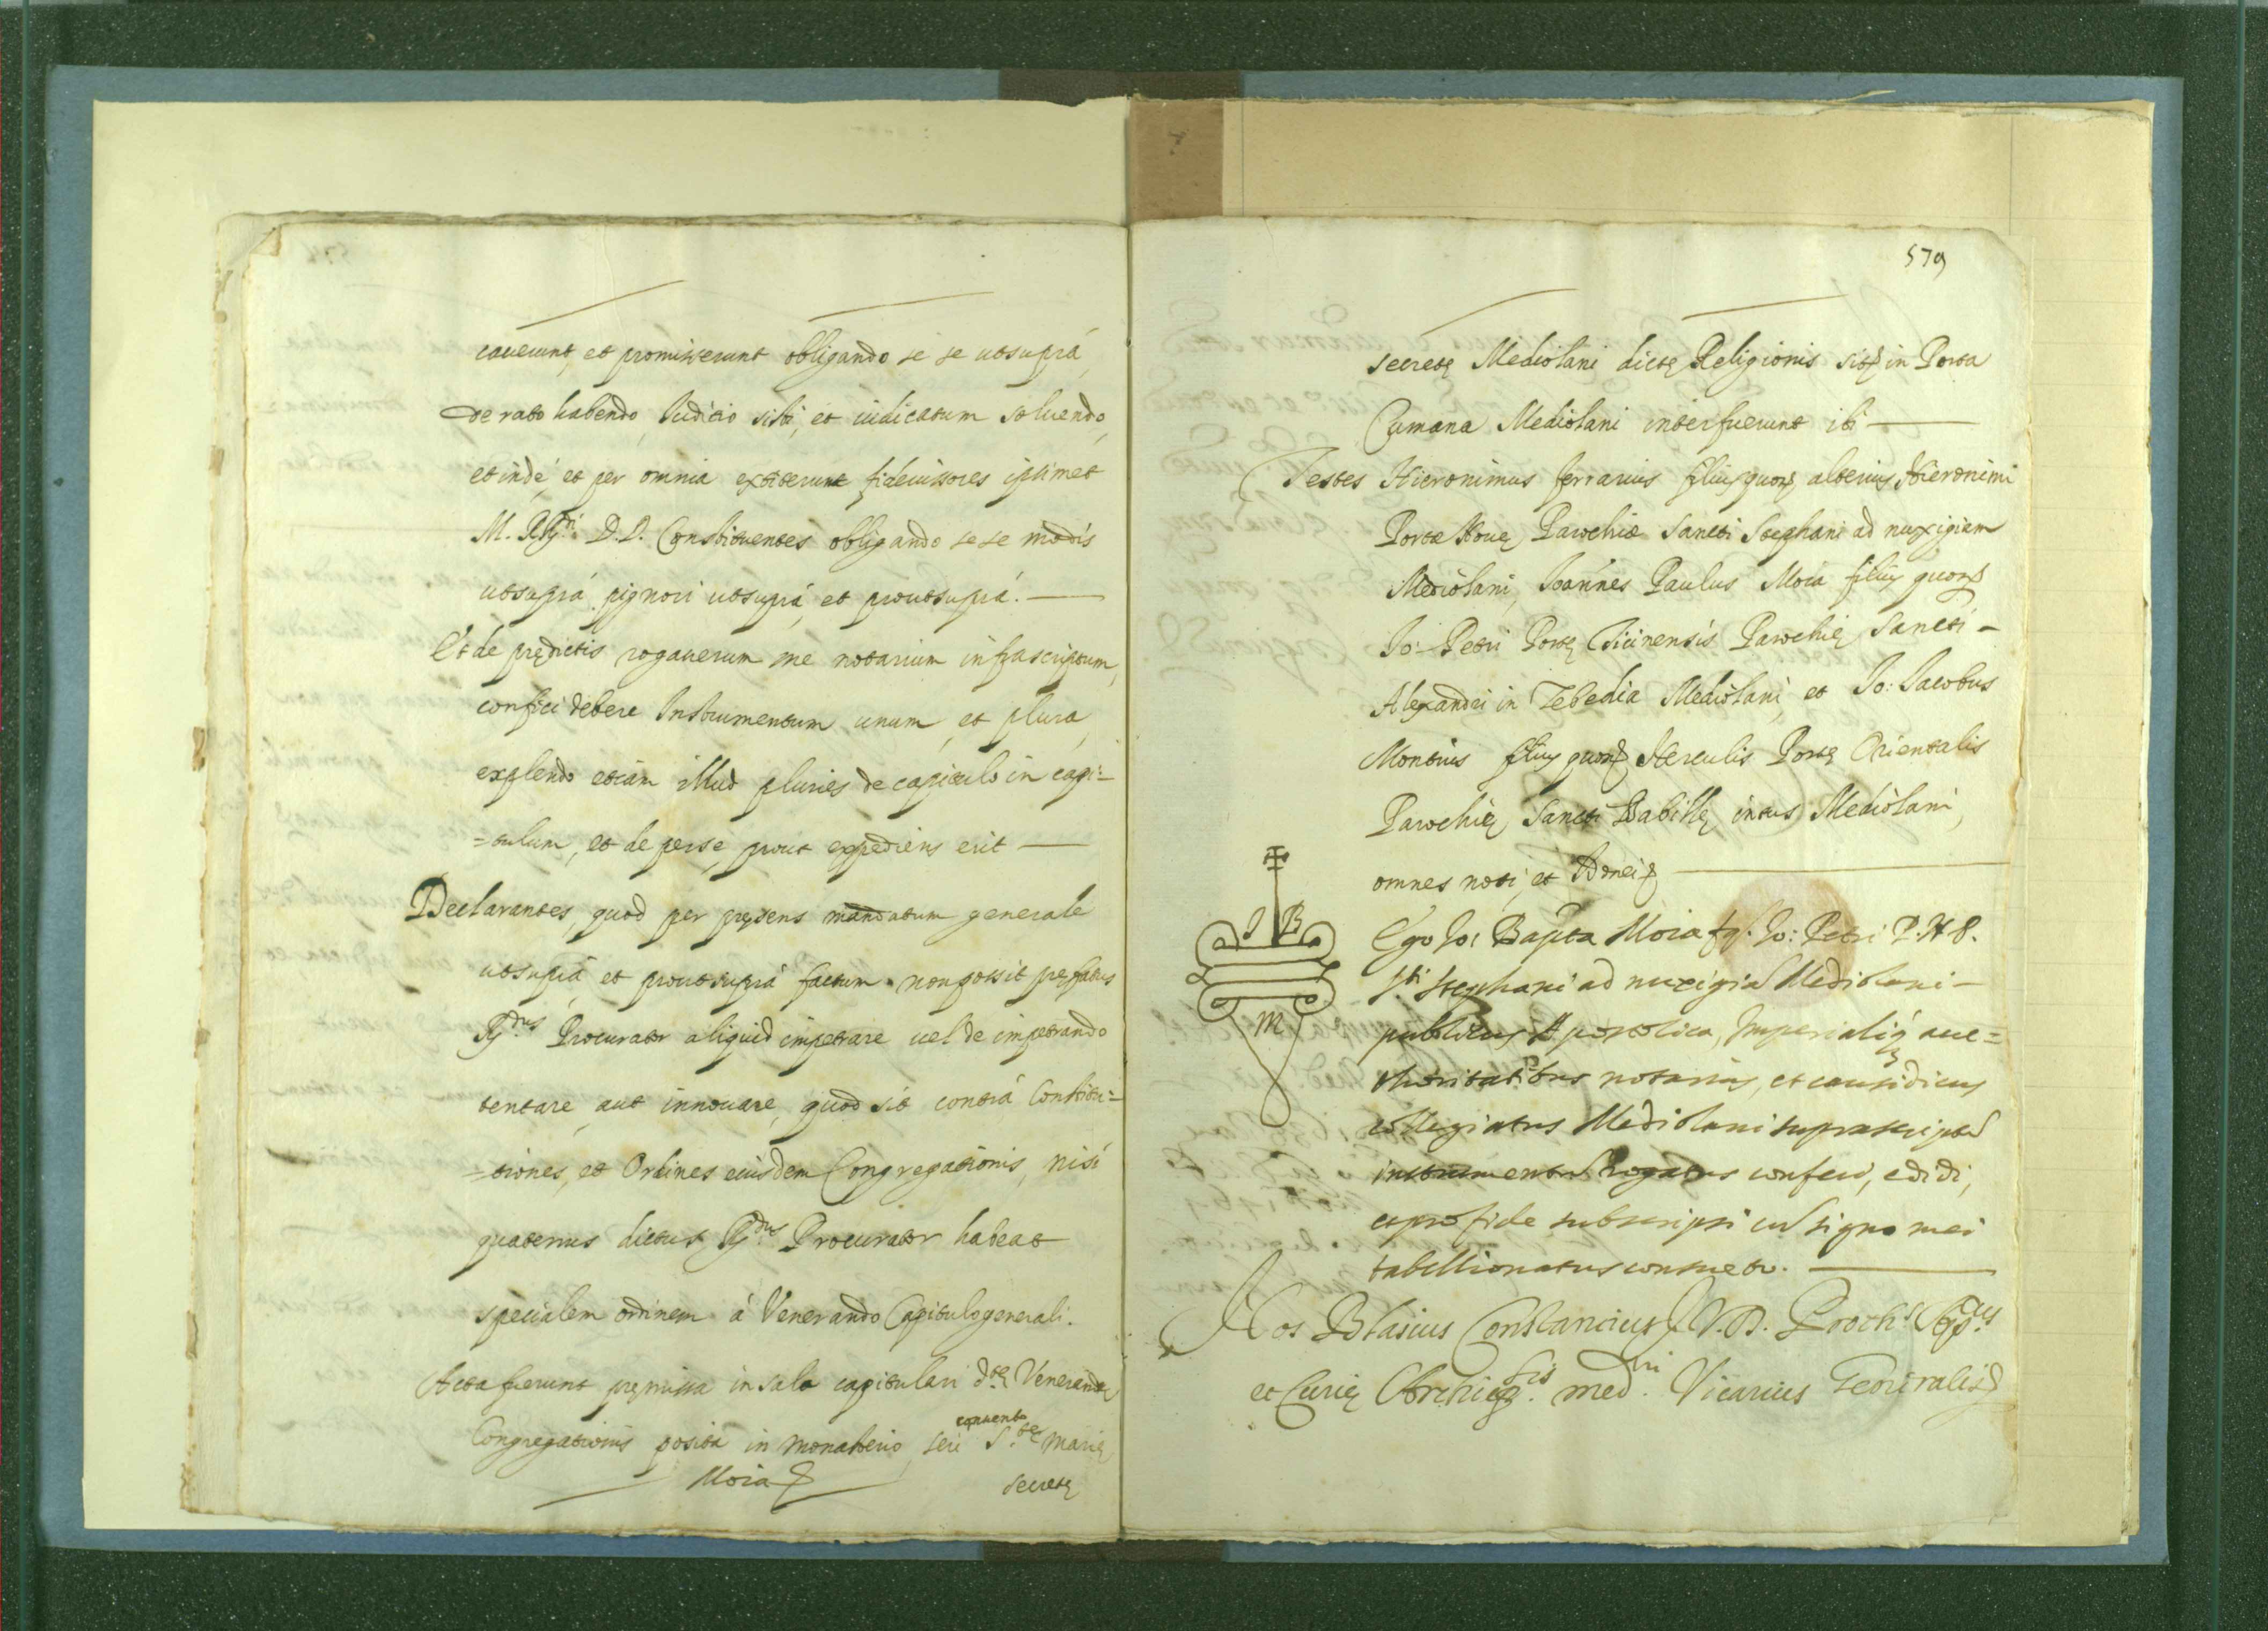 cauerunt, et promisserunt obligando se se utsuprà,
de rato habendo, Iudicio sisti, et iudicatum soluendo,
et indè, et per omnia extiterunt fideiussores ipsimet
M. RR.di D.D. Constituentes obligando sese modis
utsuprà pignori utsuprà, et proutsuprà.
Et de prędictis rogauerunt me notarium infrascriptum,
confici debere Instrumentum unum, et plura,
explendo etiàm illud pluries de capitulo in capi=
=tulum, et de per se, prout expediens erit
Declarantes, quod per pręsens mandatum generale
utsuprà et proutsuprà factum non possit pręfatus
R.dus Procurator aliquid impetrare uel de impetrando
tentare, aut innouare, quod sit contrà Constitu=
=tiones, et Ordines eiusdem Congregationis, nisi
quatenus dictus R.dus Procurator habeat
specialem ordinem à Venerando Capitulo generali.
Acta fuerunt pręmissa in sala capitulari d.tę Venerandę
conuento
Congregationis posita in monasterio, seù S.tę Marię
Moia
secretę
579
secretę Mediolani dictę Religionis sitę in Porta
Cumana Mediolani interfuerunt ibi
Testes Hieronimus ferrarius filius quon. alterius Hieronimi
Portę Nouę Parochię Sancti Stephani ad nuxigiam
Mediolani, Ioannes Paulus Moia filius quon.
Io: Petri Portę Ticinensis Parochię Sancti
Alexandri in Zebedia Mediolani, et Io: Iacobus
Montius filius quon. Herculis Portę Orientalis
Parochię Sancti Babillę intus Mediolani,
omnes noti, et Idonei
I B
M
Ego Io: Bapta Moia fq. Io: Petri P. N. P.
S.ti Stephani ad nuxigia Mediolani
publicus Apostolica, Imperialiq; auc=
thoritatibus notarius, et causidicus
collegiatus Mediolani suprascriptu
instrumentu rogatus confeci, edidi,
et pro fide subscripsi cu signo mei
tabellionatus consueto.
Nos Blasius Constancius I.V.D. Proth.s Ap.cus
et Curię Archiep.lis med.ni Vicarius Generalis